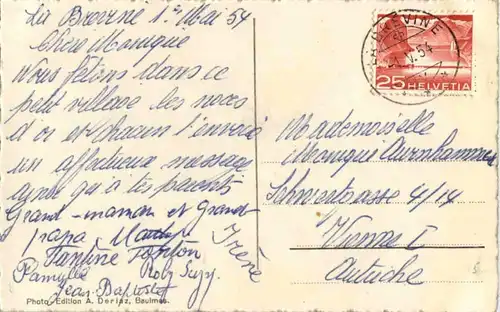 La Brévine 1er Mai 54
Chère Monique
Nous fêtons dans ce
petit village les noces
d'or et chacun t'envoie
un affectueux message
ainsi qu'à tes parents
Grand-maman et Grand-
papa
Tantine Tonton
Pamylle Roby Suzy.
Jean-Baptiste
Irène
Photo. Edition A. Deriaz, Baulmes.
LA BREVINE
1.V.54
25 HELVETIA
Mademoiselle
Monique Auernhammer
4/14
Vienne I
Autriche